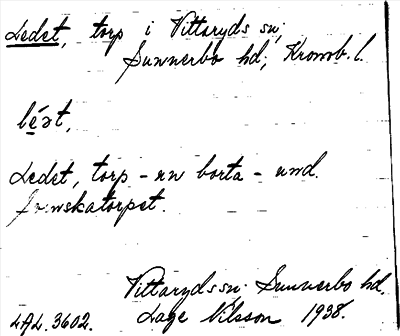 Ledet, torp i Vittaryds sn;
Sunnerbo hd; Kronob. l.
léət,
Ledet, torp - nu borta - und.
Vittaryds sn. Sunnerbo hd.
LAL. 3602. Lage Nilsson 1938.